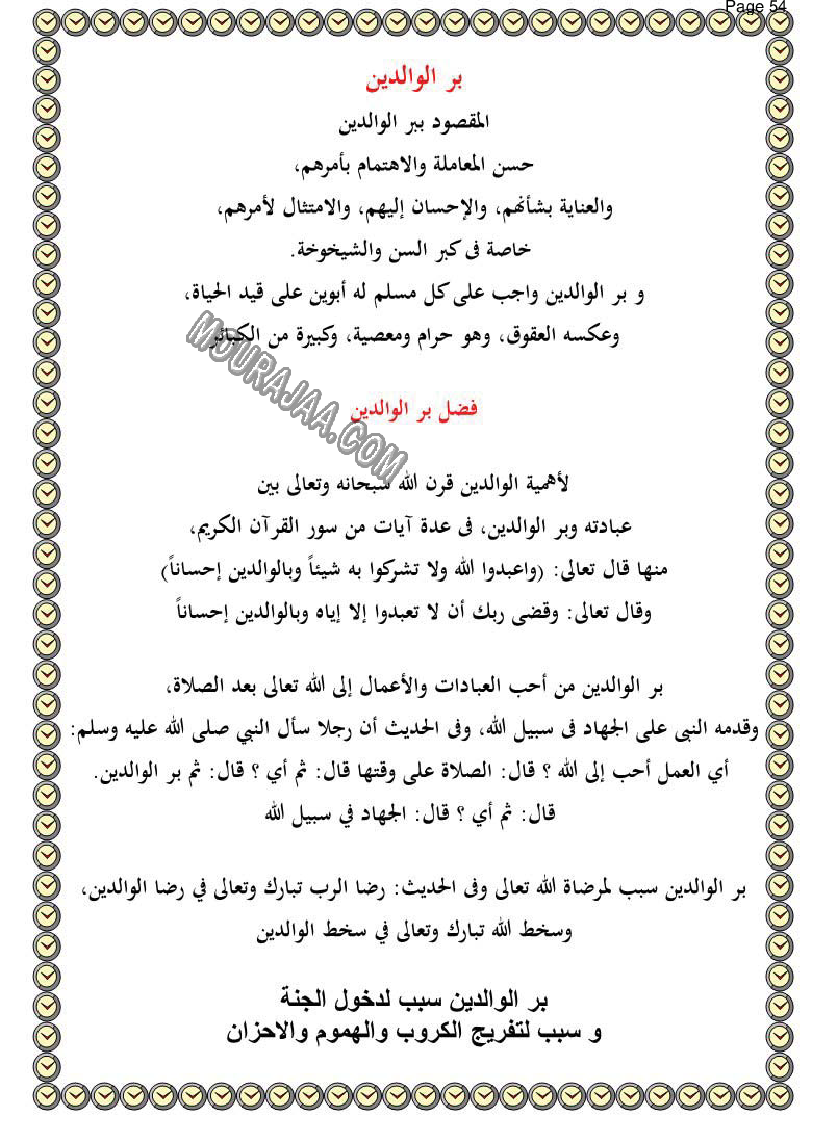 Page 54
بر الوالدين
المقصود ببر الوالدين
حسن المعاملة والاهتمام بأمرهم،
والعناية بشأنهم، والإحسان إليهم، والامتثال لأمرهم،
خاصة فى كبر السن والشيخوخة.
و بر الوالدين واجب على كل مسلم له أبوين على قيد الحياة،
وعكسه العقوق، وهو حرام ومعصية، وكبيرة من الكبائر
MOURAJAA.COM
فضل بر الوالدين
لأهمية الوالدين قرن الله سبحانه وتعالى بين
عبادته وبر الوالدين، فى عدة آيات من سور القرآن الكريم،
منها قال تعالى: (واعبدوا الله ولا تشركوا به شيئاً وبالوالدين إحساناً)
وقال تعالى: وقضى ربك أن لا تعبدوا إلا إياه وبالوالدين إحساناً
بر الوالدين من أحب العبادات والأعمال إلى الله تعالى بعد الصلاة،
وقدمه النبى على الجهاد فى سبيل الله، وفى الحديث أن رجلا سأل النبي صلى الله عليه وسلم:
أي العمل أحب إلى الله ؟ قال: الصلاة على وقتها قال: ثم أي ؟ قال: ثم بر الوالدين.
قال: ثم أي ؟ قال: الجهاد في سبيل الله
بر الوالدين سبب لمرضاة الله تعالى وفى الحديث: رضا الرب تبارك وتعالى في رضا الوالدين،
وسخط الله تبارك وتعالى في سخط الوالدين
بر الوالدين سبب لدخول الجنة
و سبب لتفريج الكروب والهموم والاحزان